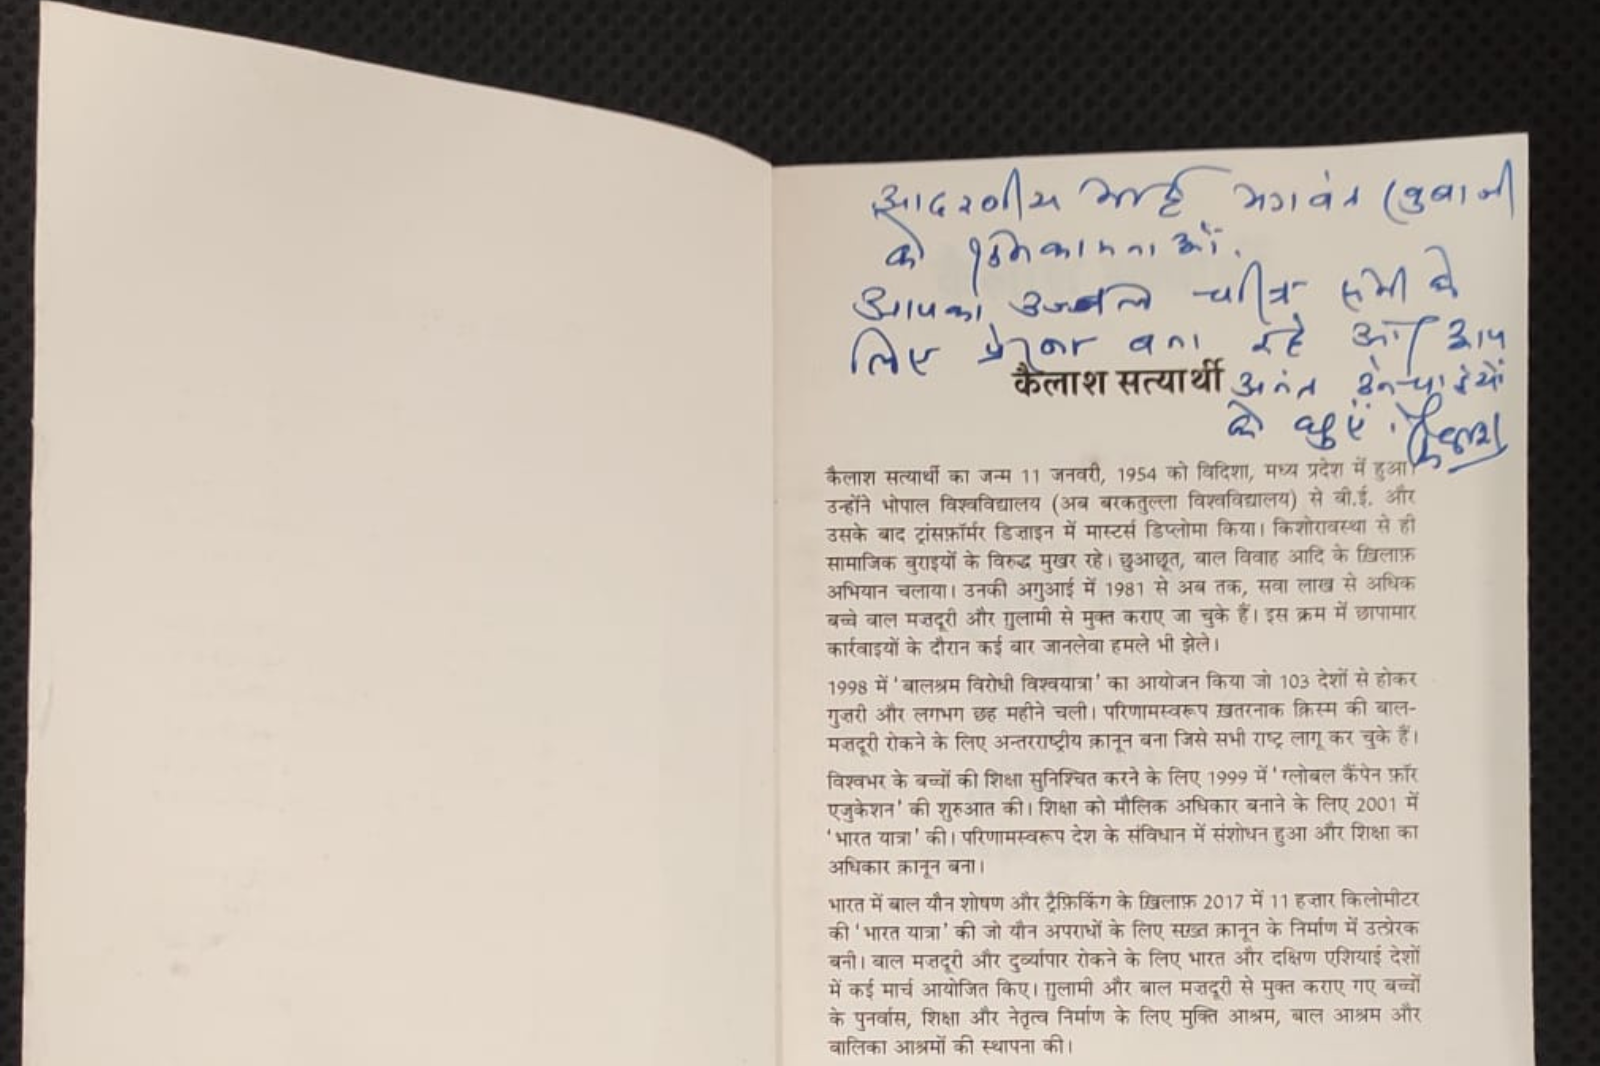 आदरणीय भाई भगवंत खुबा जी
को शुभकामनाओं.
आपका उज्जवल चरित्र सभी के
लिए प्रेरणा बना रहे और आप
अनंत ऊंचाईयों
को छुएं.
कैलाश
कैलाश सत्यार्थी
कैलाश सत्यार्थी का जन्म 11 जनवरी, 1954 को विदिशा, मध्य प्रदेश में हुआ।
उन्होंने भोपाल विश्वविद्यालय (अब बरकतुल्ला विश्वविद्यालय) से बी.ई. और
उसके बाद ट्रांसफ़ॉर्मर डिज़ाइन में मास्टर्स डिप्लोमा किया। किशोरावस्था से ही
सामाजिक बुराइयों के विरुद्ध मुखर रहे। छुआछूत, बाल विवाह आदि के ख़िलाफ़
अभियान चलाया। उनकी अगुआई में 1981 से अब तक, सवा लाख से अधिक
बच्चे बाल मज़दूरी और ग़ुलामी से मुक्त कराए जा चुके हैं। इस क्रम में छापामार
कार्रवाइयों के दौरान कई बार जानलेवा हमले भी झेले।
1998 में 'बालश्रम विरोधी विश्वयात्रा' का आयोजन किया जो 103 देशों से होकर
गुज़री और लगभग छह महीने चली। परिणामस्वरूप ख़तरनाक क़िस्म की बाल-
मज़दूरी रोकने के लिए अन्तरराष्ट्रीय क़ानून बना जिसे सभी राष्ट्र लागू कर चुके हैं।
विश्वभर के बच्चों की शिक्षा सुनिश्चित करने के लिए 1999 में 'ग्लोबल कैंपेन फ़ॉर
एजुकेशन' की शुरुआत की। शिक्षा को मौलिक अधिकार बनाने के लिए 2001 में
'भारत यात्रा' की। परिणामस्वरूप देश के संविधान में संशोधन हुआ और शिक्षा का
अधिकार क़ानून बना।
भारत में बाल यौन शोषण और ट्रैफ़िकिंग के ख़िलाफ़ 2017 में 11 हज़ार किलोमीटर
की 'भारत यात्रा' की जो यौन अपराधों के लिए सख़्त क़ानून के निर्माण में उत्प्रेरक
बनी। बाल मज़दूरी और दुर्व्यापार रोकने के लिए भारत और दक्षिण एशियाई देशों
में कई मार्च आयोजित किए। ग़ुलामी और बाल मज़दूरी से मुक्त कराए गए बच्चों
के पुनर्वास, शिक्षा और नेतृत्व निर्माण के लिए मुक्ति आश्रम, बाल आश्रम और
बालिका आश्रमों की स्थापना की।